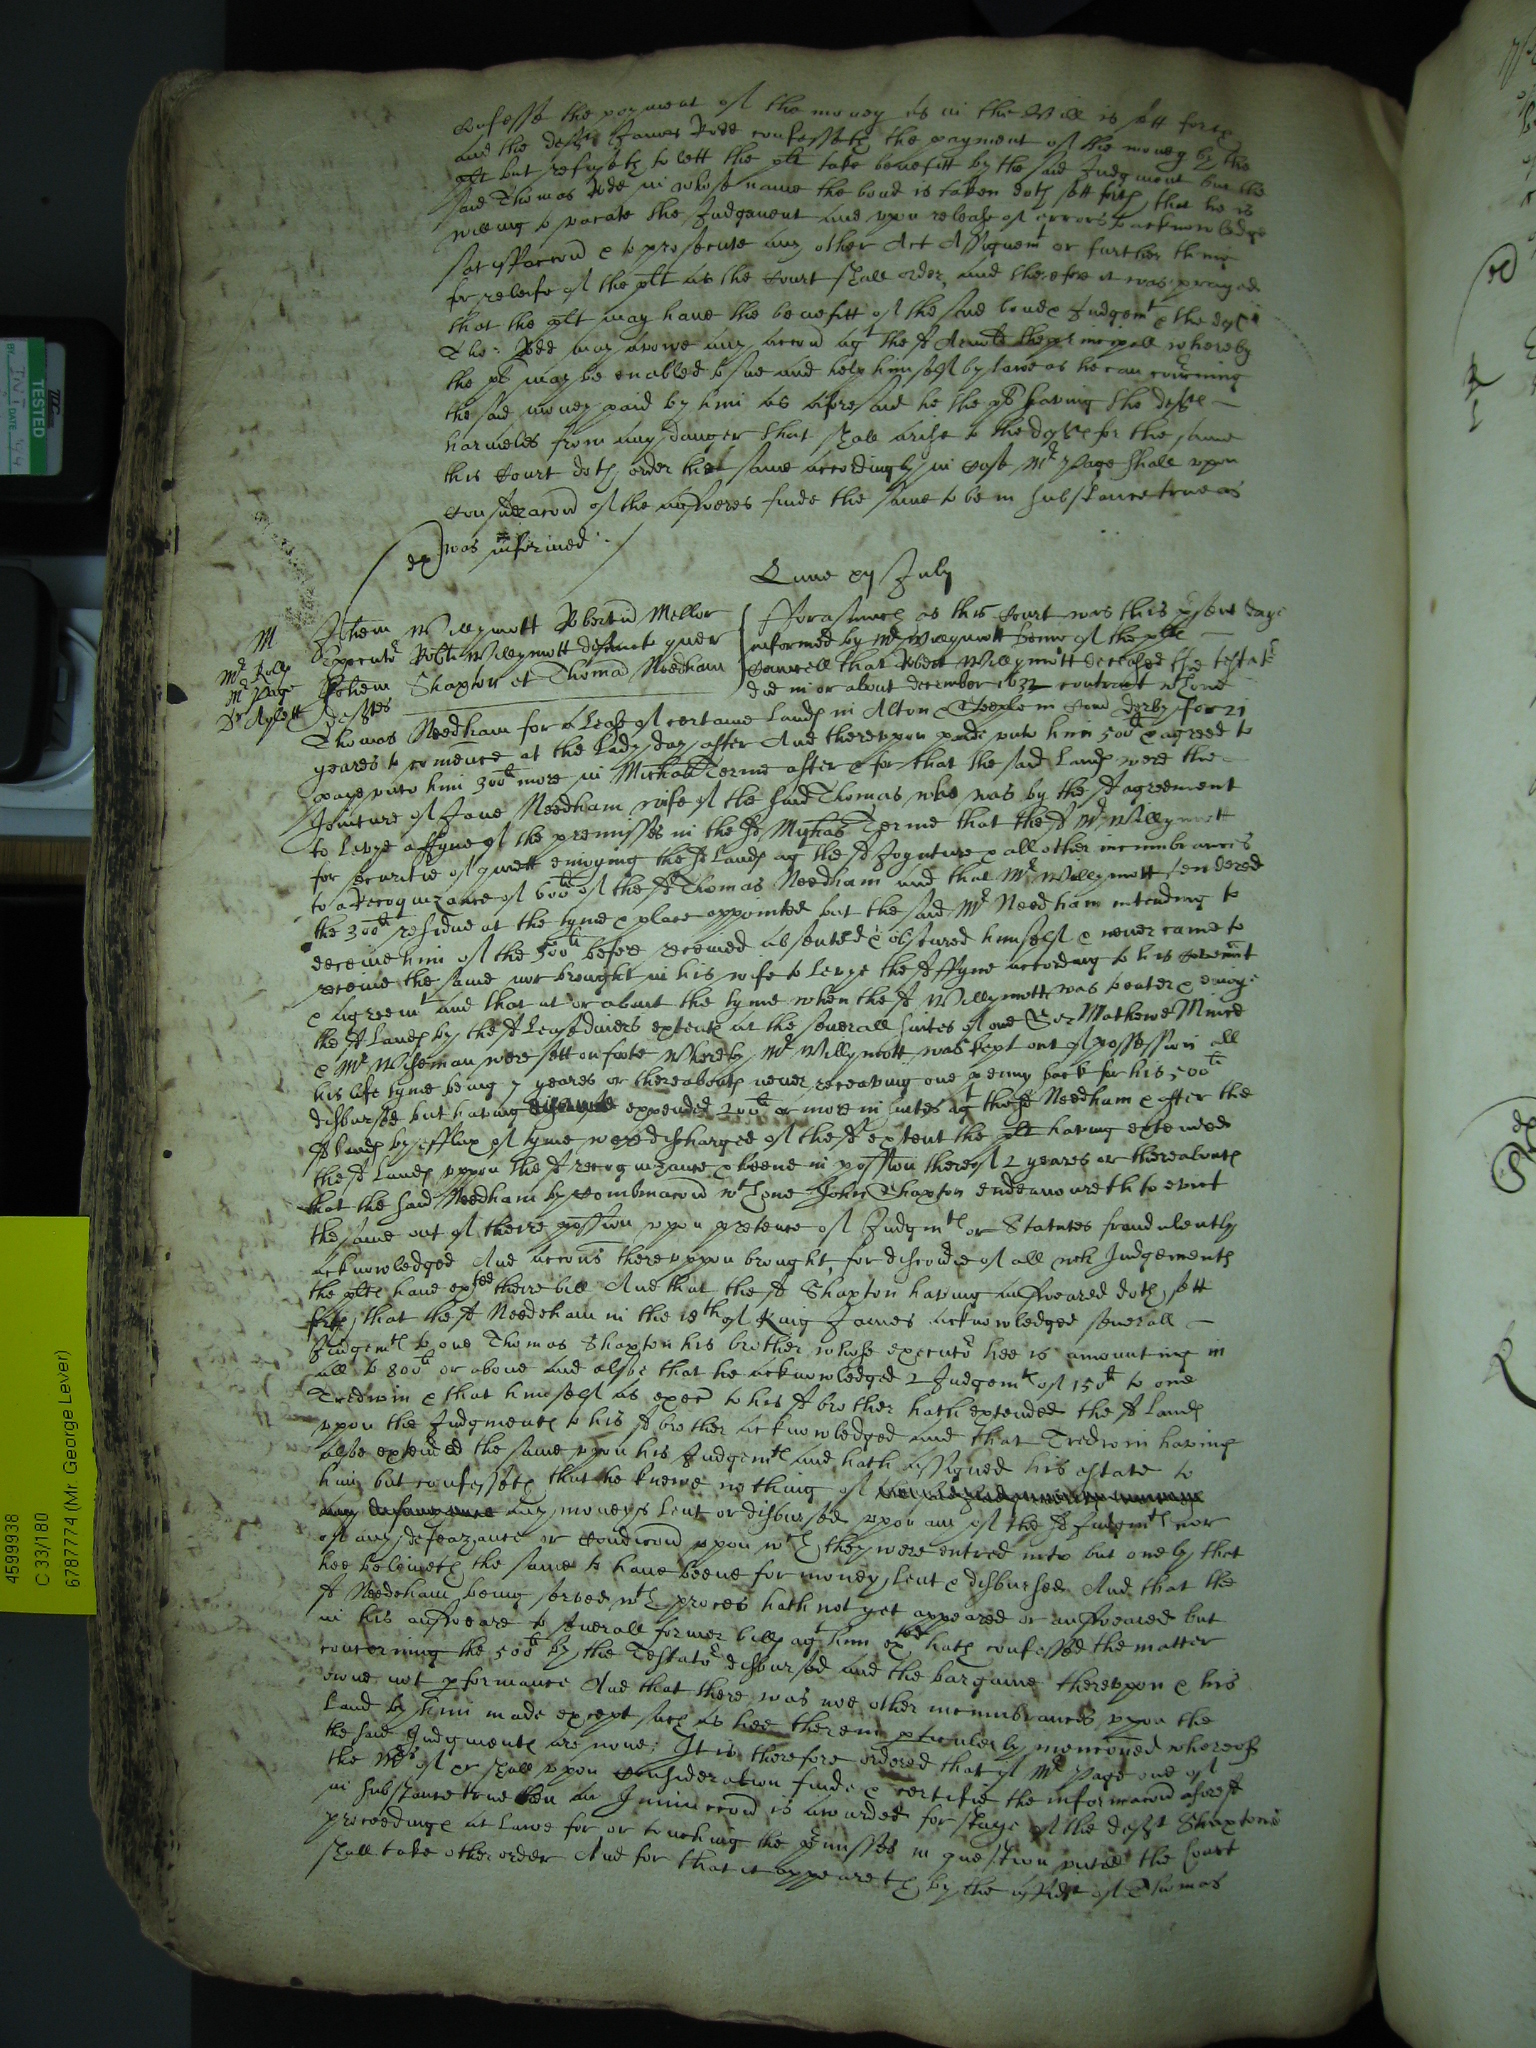 confesse the payment of the money as in the Bill is sett forth
and the deft James Rode confesseth the payment of the money by the
plt but refuseth to lett the plt take benefitt by the said Judgment but the
said Thomas Rode in whose name the bond is taken doth sett forth that he is
willing to vacate the Judgement and upon release of errors to acknowledge
satisfaccon & to prosecute any other Act Assignemt or further thing
for releife of the plt as the Court shall order, and therefore it was prayed
that the plt may have the benefitt of the said bond & Judgemt & the deft
Tho: Rode may avowe any accon agt the sd the principall whereby
the plt may be enabled to sue and help himself by lawe as he can concerning
the said money paid by him as aforesaid he the plt saving the defte
harmeles from any danger that shall arise to the defte for the same
this Court doth order the same accordingly in case Mr Page shall upon
consideracon of the answeres finde the same to be in substance true as
was informed
Lune xvj July
M
Mr Rolf
Mr Page
Dr Aylett
Johem Willymott Robertu Mellor
Executor Robti Willymott defunct quer
Johem Shaxton et Thoma Needham
deftes
Forasmuch as this Court was this present daye
informed by Mr Willymott being of the plts
Councell that Robert Willymott deceased the testator
did in or about december 1632 contract wth one
Thomas Needham for a Lease of certaine Lands in Alton & in Com derby for 21
yeares to comence at the Lady day after And thereupon paide unto him 500li & agreed to
paye unto him 300li more in Michas Terme after & for that the said Lands were the
Jointure of Jane Needham wife of the said Thomas who was by the sd agreement
to levye a ffyne of the premisses in the sd Michas Terme that the sd Mr Willymott
for securitie of quiett enioying the sd Lands agt the sd Joynture & all other incumbrances
to a Recognizance of 600li of the sd Thomas Needham and that Mr Willymott tendered
the 300li residue at the tyme & place appointed but the said Mr Needham intending to
deceive him of the 500li before received absented & obscured himself & never came to
receive the same nor brought in his wife to levye the sd ffyne according to his covenant
& agreemt and that at or about the tyme when the sd Willymott was to enter & enioye
the sd Lands by the sd Lease divers extents at the severall suites of one Sr Mathewe Mince
& Mr Wiseman were sett on foote whereby Mr Willymott was kept out of possession all
his life tyme being 7 yeares or thereabouts never receaving one penny back for his 500li
disbursed but having expended 200li or more in suites agt the sd Needham & after the
sd Lands by efflux of tyme were discharged of the sd extent the plt having extended
the sd Lands uppon the sd recognizance & beene in possion thereof 2 yeares or thereabouts
that the said Needham by combinacon wth one John Shaxton endeavoureth to evict
the same out of theire possion upon pretence of Judgmts or Statutes fraudulently
acknowledged And accons thereuppon brought, for discovrie of all wch Judgements
the plts have exted theire bill And that the sd Shaxton having answeared doth sett
forth that the sd Needeham in the 18th of King James acknowledged severall
Judgemts to one Thomas Shaxton his brother whose executor hee is amounting in
all to 800li or above and alsoe that he acknowledged 2 Judgemts of 150li to one
Tredwin & that himself as exec to his sd brother hath extended the sd Lands
upon the Judgments to his sd brother acknowledged and that Tredwin having
alsoe extended the same upon his Judgemts and hath assigned his estate to
him but confesseth that he knewe nothing of
any moneys lent or disbursed upon any of the sd Judgmts nor
of any defeazance or condicon upon wch they were entred into but onely that
hee beleiveth the same to have beene for money lent & disbursed And that the
sd Needeham being served wth proces hath not yet appeared or answeared but
in his answeare to severall former bills agt him exted hath confessed the matter
concerning the 500li by the Testator disbursed and the bargaine thereupon & his
owne not pformance And that there was noe other incumbrances upon the
Land by him made except such as hee therein pticulerly menconed whereof
the said Judgments are none; It is therefore ordered that if Mr Page one of
the Mrs of cr shall upon consideration finde & certifie the informacon aforesd
in substance true then an Iniunccon is awarded for staye of the deft Shaxtons
proceedings at Lawe for or touching the premisses in question untill the Court
shall take other order And for that it appeareth by the affidt of Thomas
TESTED
BY
DATE
4599938
C 33/180
6787774 (Mr George Lever)